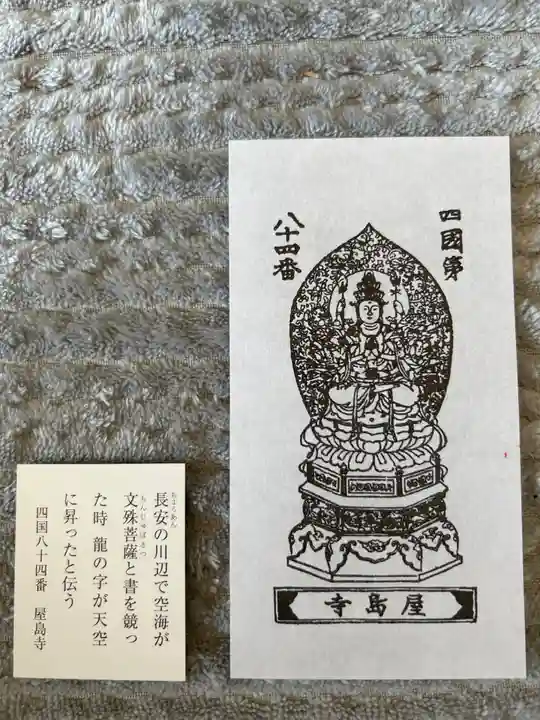 四國第
八十四番
寺島屋
長安の川辺で空海が
文殊菩薩と書を競っ
た時 龍の字が天空
に昇ったと伝う
四国八十四番 屋島寺
ちょうあん
もんじゅぼさつ